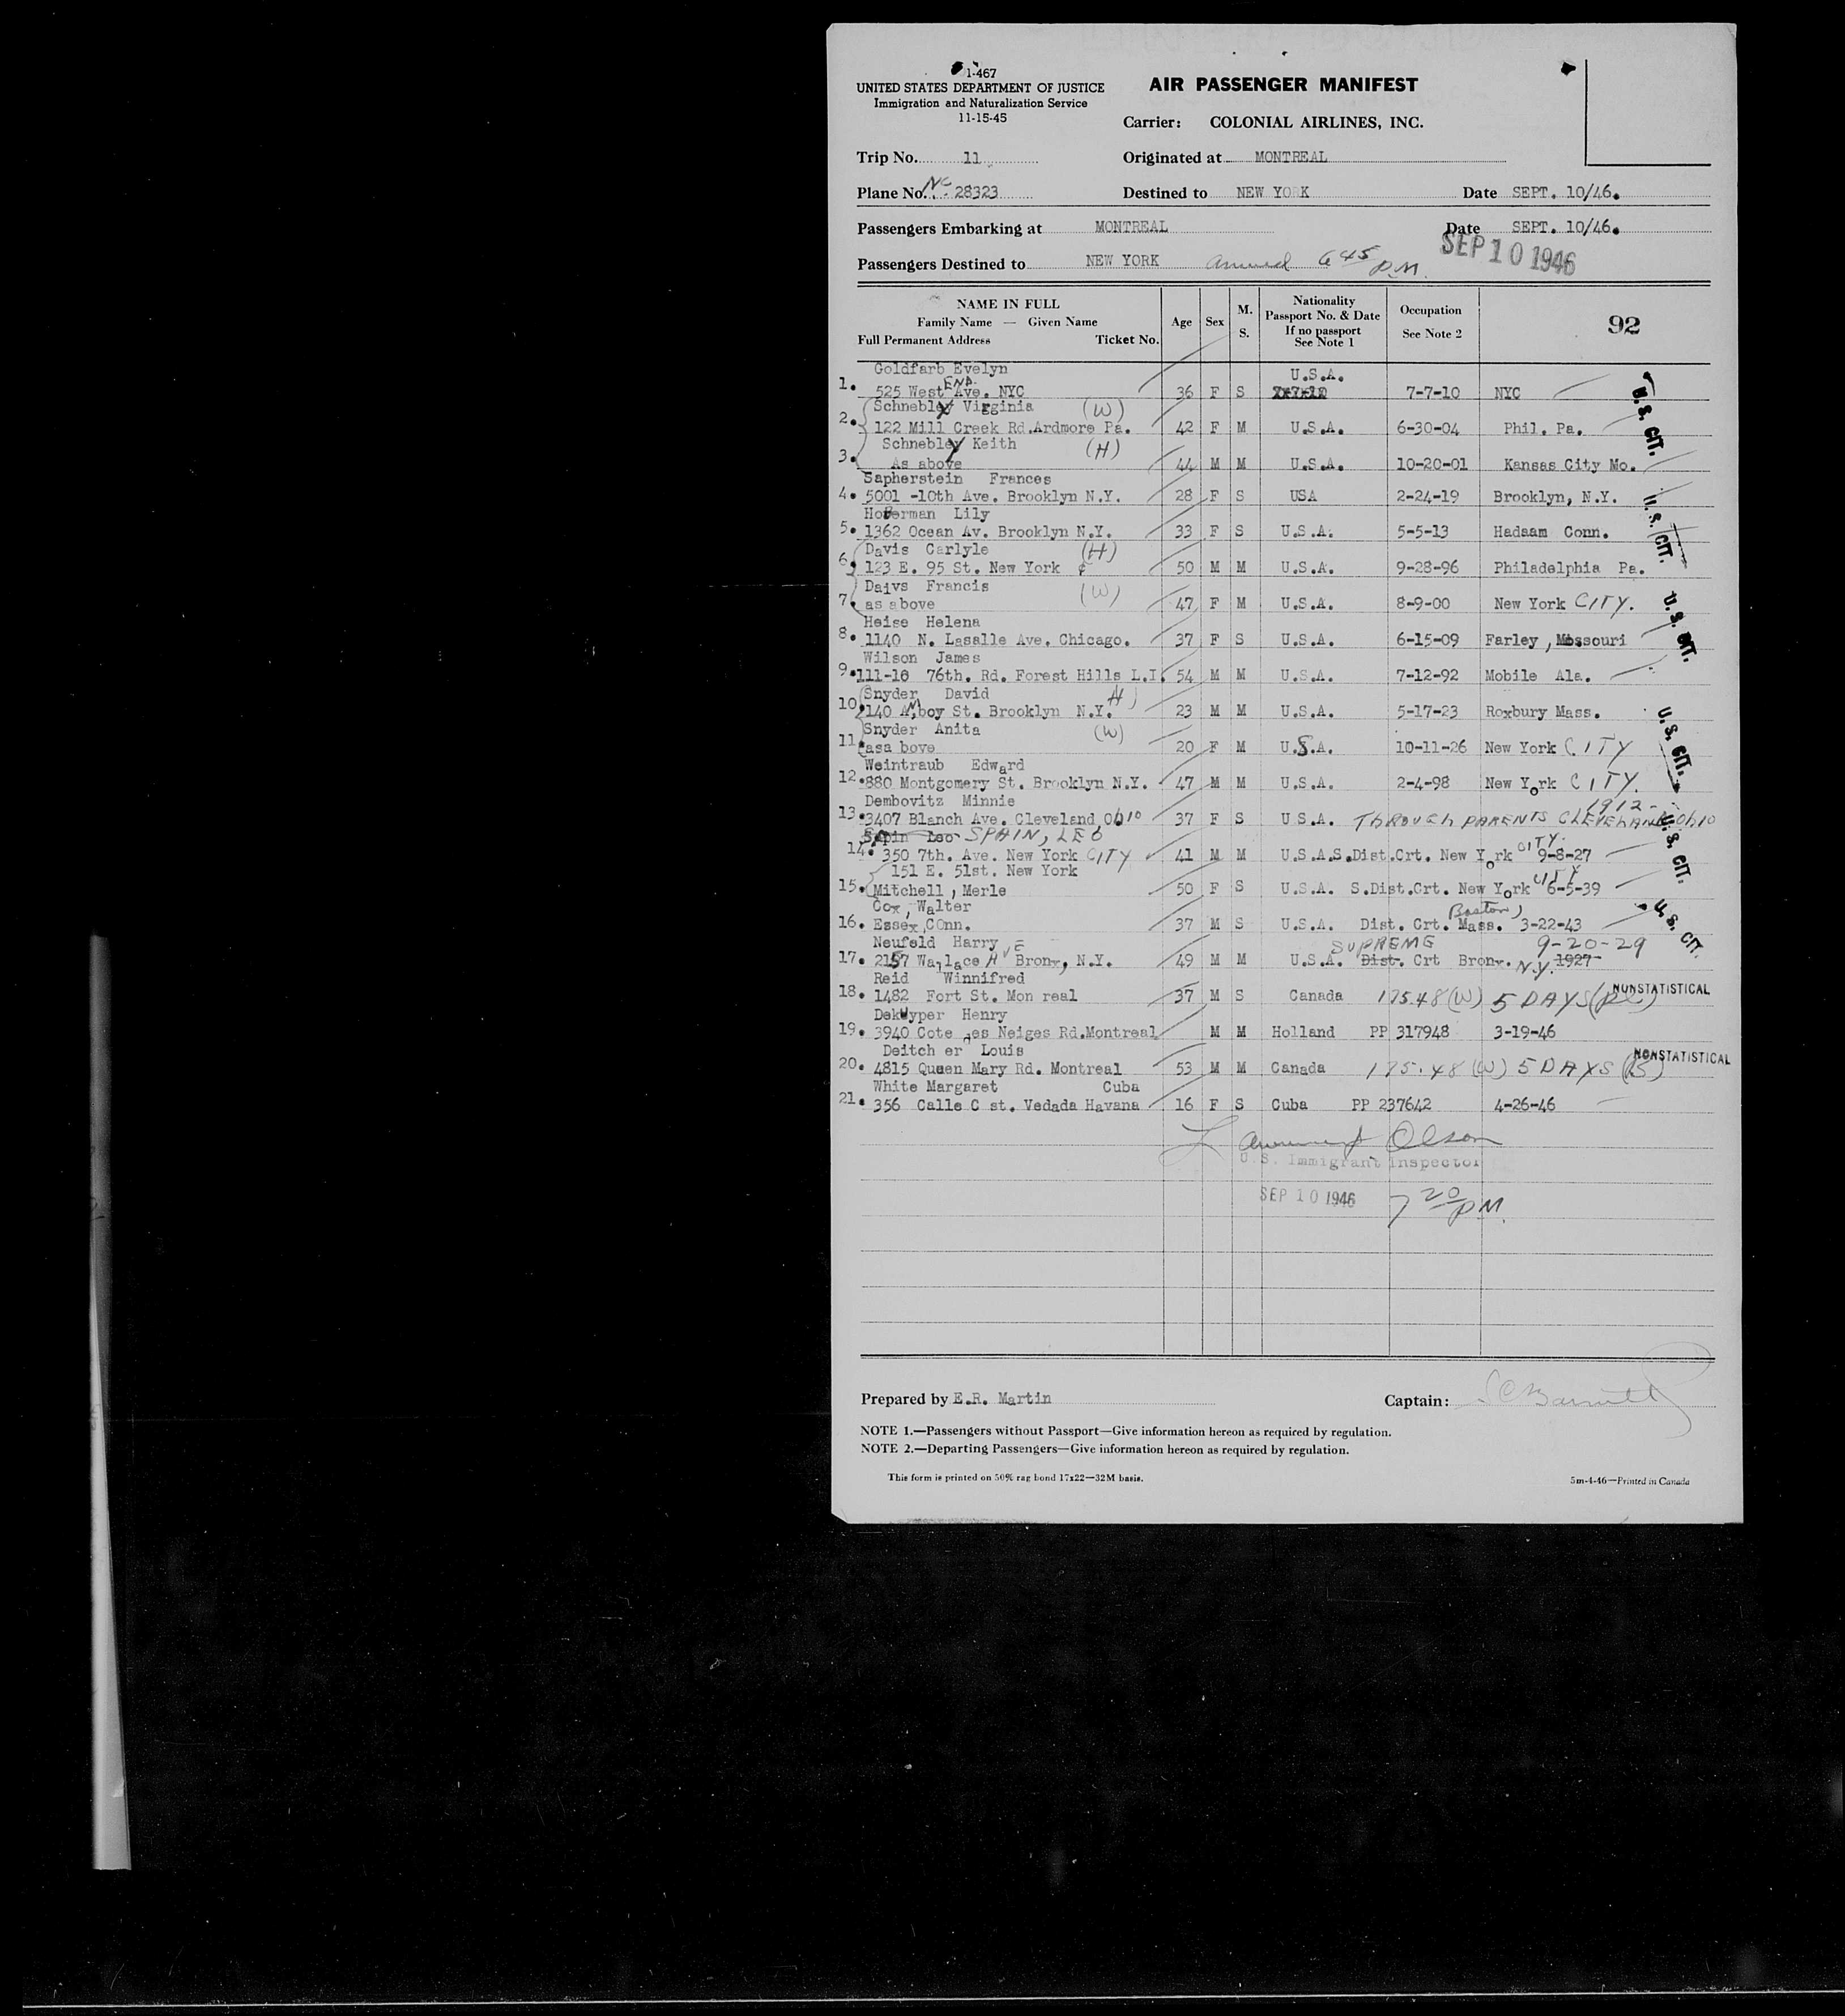 1-467
UNITED STATES DEPARTMENT OF JUSTICE
Immigration and Naturalization Service
11-15-45
AIR PASSENGER MANIFEST
Carrier: COLONIAL AIRLINES, INC.
Trip No. 11 Originated at MONTREAL
Plane No. NC- 28323 Destined to NEW YORK Date SEPT. 10/46.
Passengers Embarking at MONTREAL Date SEPT. 10/46.
SEP 10 1946
Passengers Destined to NEW YORK arrived 6 45 P.M.
NAME IN FULL
Family Name — Given Name
Full Permanent Address Ticket No.
Age Sex M. S.
Nationality
Passport No. & Date
If no passport
See Note 1
Occupation
See Note 2
92
Goldfarb Evelyn U.S.A.
1. 525 West END Ave. NYC 36 F S 7-7-10 NYC
Schnebly Virginia (W)
2. 122 Mill Creek Rd.Ardmore Pa. 42 F M U.S.A. 6-30-04 Phil. Pa. U.S. CIT.
Schnebly Keith (H)
3. As above 44 M M U.S.A. 10-20-01 Kansas City Mo.
Sapherstein Frances
4. 5001 -10th Ave. Brooklyn N.Y. 28 F S USA 2-24-19 Brooklyn, N.Y.
Lily
5. 1362 Ocean Av. Brooklyn N.Y. 33 F S U.S.A. 5-5-13 Hadaam Conn. U.S. CIT.
Davis Carlyle (H)
6. 123 E. 95 St. New York 50 M M U.S.A. 9-28-96 Philadelphia Pa.
Daivs Francis (W)
7. as above 47 F M U.S.A. 8-9-00 New York CITY.
Heise Helena
8. 1140 N. Lasalle Ave. Chicago. 37 F S U.S.A. 6-15-09 Farley, Missouri U.S. CIT.
Wilson James
9. 111-16 76th. Rd. Forest Hills L.I. 54 M M U.S.A. 7-12-92 Mobile Ala.
Snyder David H)
10. 140 Amboy St. Brooklyn N.Y. 23 M M U.S.A. 5-17-23 Roxbury Mass.
Snyder Anita (W)
11. asa bove 20 F M U.S.A. 10-11-26 New York CITY U.S. CIT.
Weintraub Edward
12. 880 Montgomery St. Brooklyn N.Y. 47 M M U.S.A. 2-4-98 New York CITY.
Dembovitz Minnie 1912-
13. 3407 Blanch Ave. Cleveland Ohio 37 F S U.S.A. THROUGH PARENTS CLEVELAND Ohio
Sapin Leo SPAIN, LEO
14. 350 7th. Ave. New York CITY 41 M M U.S.A.S.Dist.Crt. New York CITY. 9-8-27 U.S. CIT.
151 E. 51st. New York
15. Mitchell, Merle 50 F S U.S.A. S.Dist.Crt. New York CITY 6-5-39
Cox, Walter Boston)
16. Essex, COnn. 37 M S U.S.A. Dist. Crt. Mass. 3-22-43 U.S. CIT.
Neufeld Harry SUPREME 9-20-29
17. 2157 Wallace AVE Bronx, N.Y. 49 M M U.S.A. Dist. Crt Bronx. N.Y. 1927
Reid Winnifred NONSTATISTICAL
18. 1482 Fort St. Mon real 37 M S Canada 175.48 (W) 5 DAYS
DekUyper Henry
19. 3940 Cote des Neiges Rd.Montreal M M Holland PP 317948 3-19-46
Deitch er Louis NONSTATISTICAL
20. 4815 Queen Mary Rd. Montreal 53 M M Canada 175.48 (W) 5 DAYS (B)
White Margaret Cuba
21. 356 Calle C st. Vedada Havana 16 F S Cuba PP 237642 4-26-46
Olson
U.S. Immigrant Inspector
SEP 10 1946 7 20 PM.
Prepared by E.R. Martin Captain:
NOTE 1.—Passengers without Passport—Give information hereon as required by regulation.
NOTE 2.—Departing Passengers—Give information hereon as required by regulation.
This form is printed on 50% rag bond 17x22—32M basis. 5m-4-46—Printed in Canada